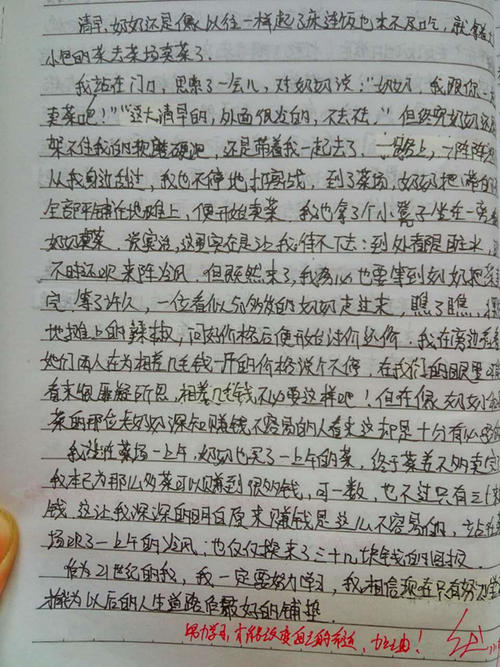 清早,奶奶还是像以往一样起了床连饭也来不及吃,就拿着大
小包的菜去菜场卖菜了.
我站在门口,思索了一会儿,对奶奶说:"奶奶,我跟你一
卖菜吧!""这大清早的,外面很冷的,不去在."但终究奶奶还
架不住我的软磨硬泡,还是带着我一起去了.一路上,一阵阵
从我身边刮过,我也不停地打寒战,到了菜场,奶奶把带的
全部平铺在地摊上,便开始卖菜.我也拿了个小凳子坐在一旁
奶奶卖菜.说实话,这里实在是让我待不下去:到处都是脏水,
不时还吹来阵冷风.但既然来了,我务必也要等到奶奶把菜
完.等了许久,一位看似60多岁的奶奶走过来,瞧了瞧,
地摊上的辣椒,问起价格后便开始讨价还价.我在旁边看着
她们两人在为相差几毛钱一斤的价格说个不停.在我们的眼里
看来很匪疑所思,相差几毛钱不必要这样吧!但在像奶奶
菜的那位老奶奶深知赚钱不容易的人看来这却是十分有必要的
我没在菜场一上午,奶奶也买了一上午的菜,终于菜差不多卖完
我本以为那么多菜可以赚到很多钱,可一数,也不过只有三十
钱.这让我深深的明白原来赚钱是这么不容易的,
场吹了一上午的冷风,也仅仅换来了三十几块钱的回报.
作为21世纪的我,我一定要努力学习,我相信现在只有努力学
才能为以后的人生道路做最好的铺垫.
努力学习,才能改变自己的命运,加油!